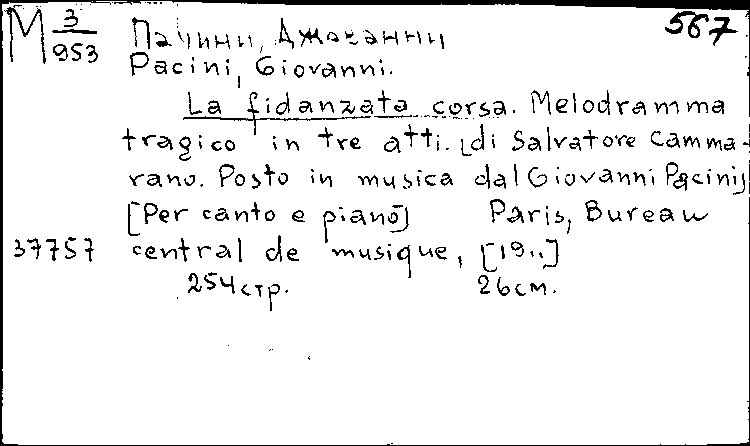 М 3/953 Пачини, Джованни 567
Pacini, Giovanni.
La fidanzata corsa. Melodramma
tragico in tre atti. [di Salvatore Camma-
rano. Posto in musica dal Giovanni Pacini]
[Per canto e piano] Paris, Bureau
37757 central de musique, [19..]
254 стр. 26 см.